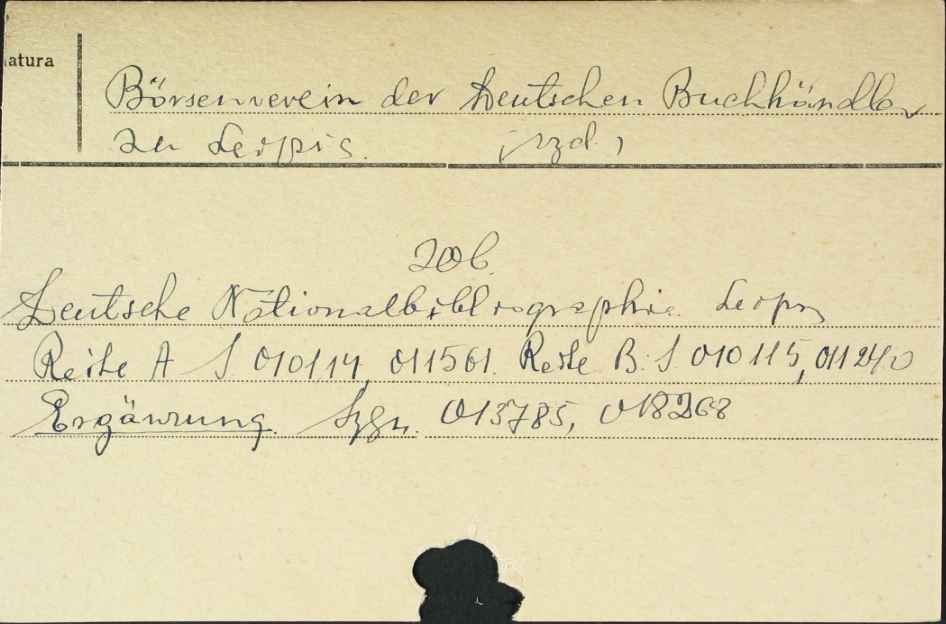 atura
Börsenverein der Deutschen Buchhändler
zu Leipzig. (wyd.)
zob.
Deutsche Nationalbibliographie. Leipzig
Reihe A S 010114, 011561. Reihe B. S. 010115, 011240
Ergänzung. Sygn. 013785, 018268